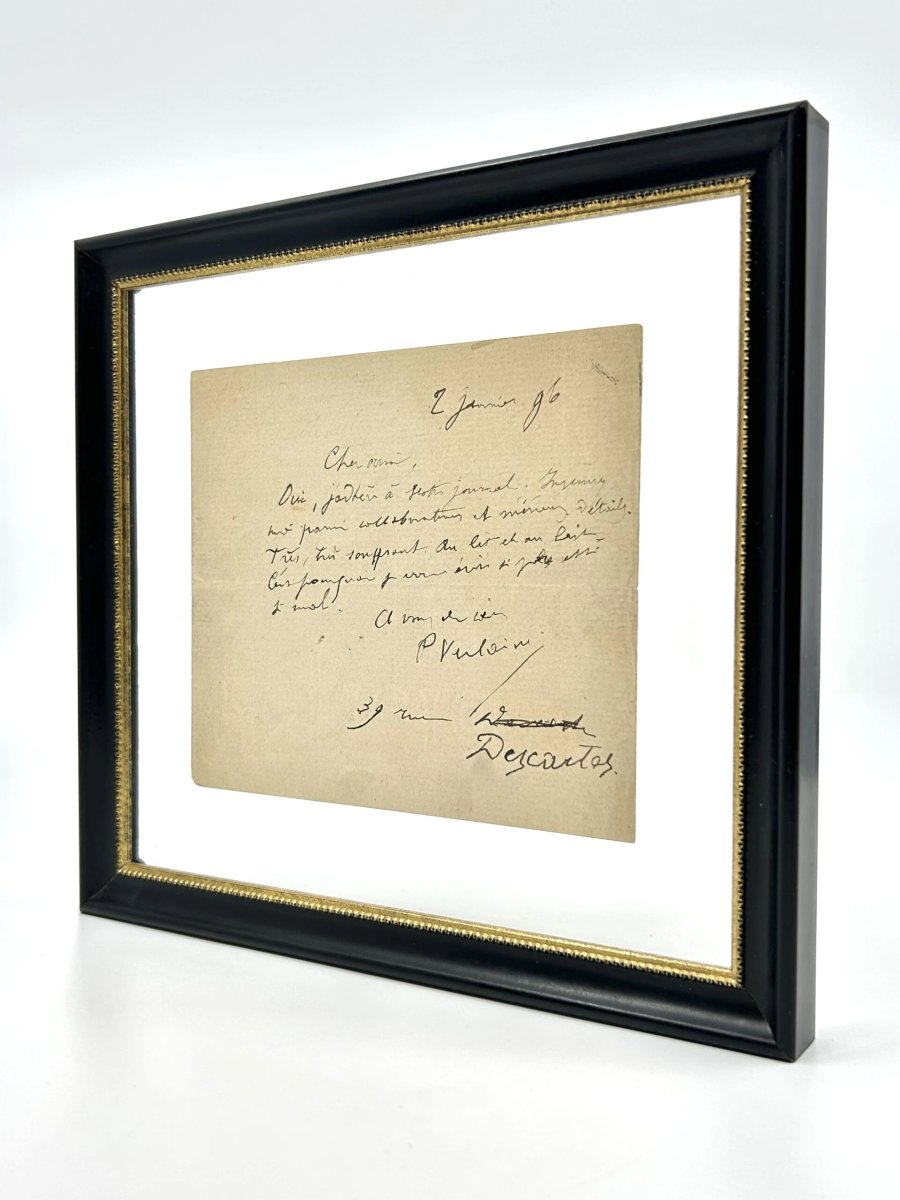 2 janvier 96
Cher ami,
Oui, j'adhère à votre journal. Inscrivez
moi parmi collaborateurs et détails.
Très, très souffrant. Au lit et au lait
C'est pourquoi je vous écris si
si mal.
A vous de cœur
P Verlaine
39 rue
Descartes.